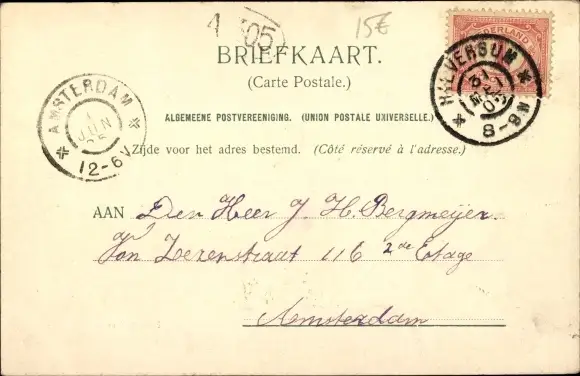 1 '05 15€
NEDERLAND
BRIEFKAART.
(Carte Postale.)
HILVERSUM
8-8N
AMSTERDAM
1 JUN
12-6V
ALGEMEENE POSTVEREENIGING. (UNION POSTALE UNIVERSELLE.)
Zijde voor het adres bestemd. (Côté réservé à l'adresse.)
AAN Den Heer J. H. Bergmeijer.
Van Lezenstraat 116 2de Etage
Amsterdam